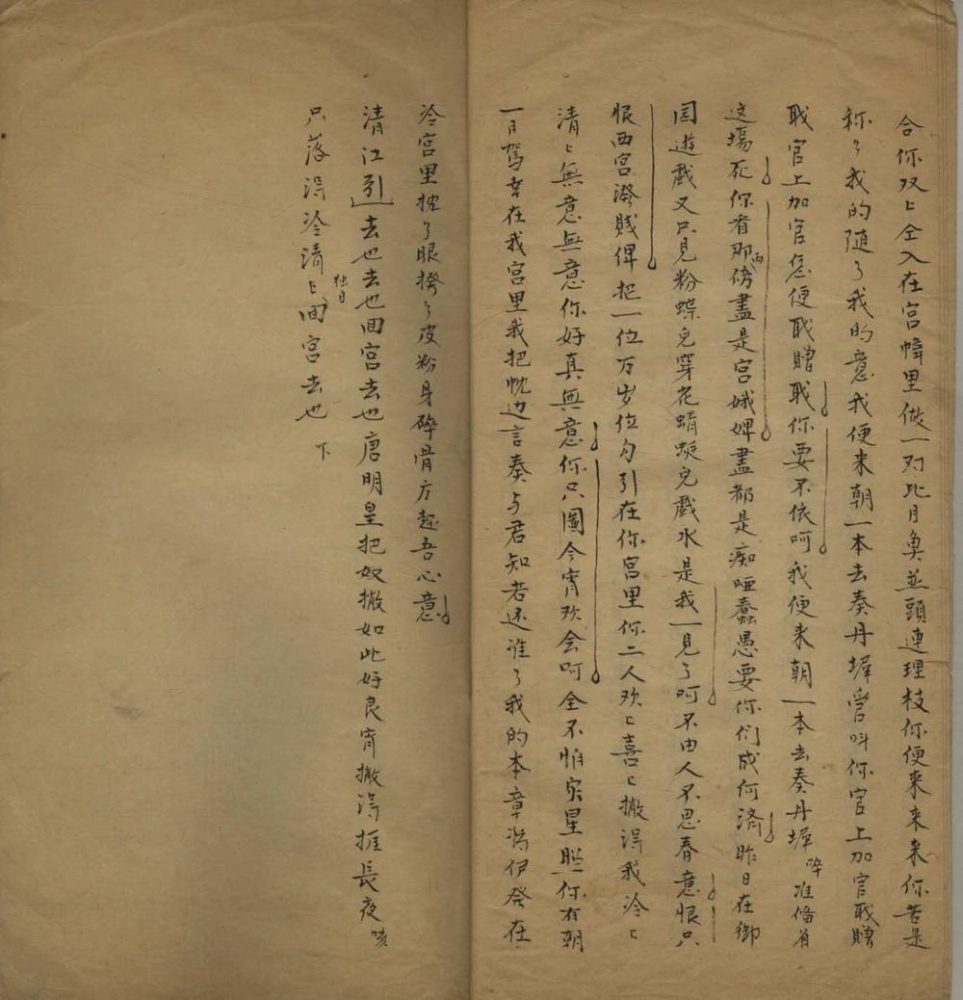 合你双〻仝入在宫幃里做一对比目魚並頭連理枝你便来来来你苦是
称了我的随了我的意我便来朝一本去奏丹墀管叫你官上加官職贈
职官上加官怎便职贈职你要不依呵我便来朝一本去奏丹墀啐准偹着
这塲死你看那两傍盡是宫娥婢盡都是痴哑蠢愚要你们成何濟昨日在御
园遊戲又只見粉蝶兒穿花蜻蜓兒戲水是我一見了呵不由人不思春意恨只
恨西宫潑賎俾把一位万岁位勾引在你宫里你二人欢〻喜〻撇得我冷〻
清〻無意無意你好真無意你只圖今宵欢会呵全不怕灾星照你有朝
一日驾幸在我宫里我把枕边言奏与君知若还准了我的本章将伊發在
冷宫里挖了眼揆了皮粉身碎骨方趁吾心意
清江引去也去也回宫去也唐明皇把奴撇如此好良宵撇得捱長夜唉
只落得冷清〻独自回宫去也 下